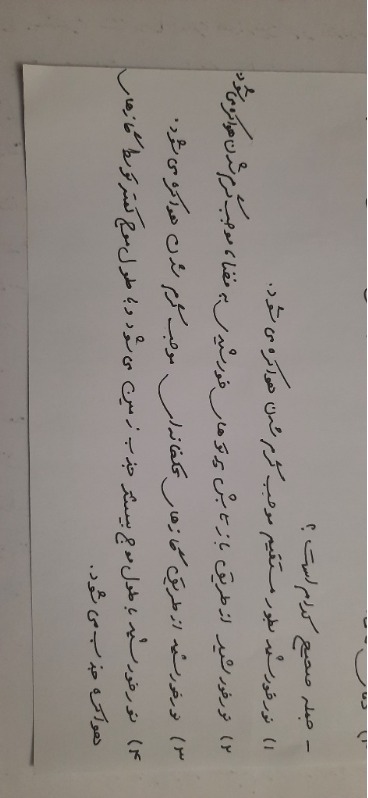 - جمله صحیح کدام است ؟
۱) نور خورشید بطور مستقیم موجب گرم شدن هواکره می شود.
۲) نور خورشید از طریق بازتابش پرتوهای خورشیدی به فضا، موجب گرم شدن هواکره می شود
۳) نور خورشید از طریق گازهای گلخانه‌ای موجب گرم شدن هواکره می شود.
۴) نور خورشید با طول موج بیشتر جذب زمین می شود و با طول موج کمتر توسط گازهای
هواکره جذب می شود.